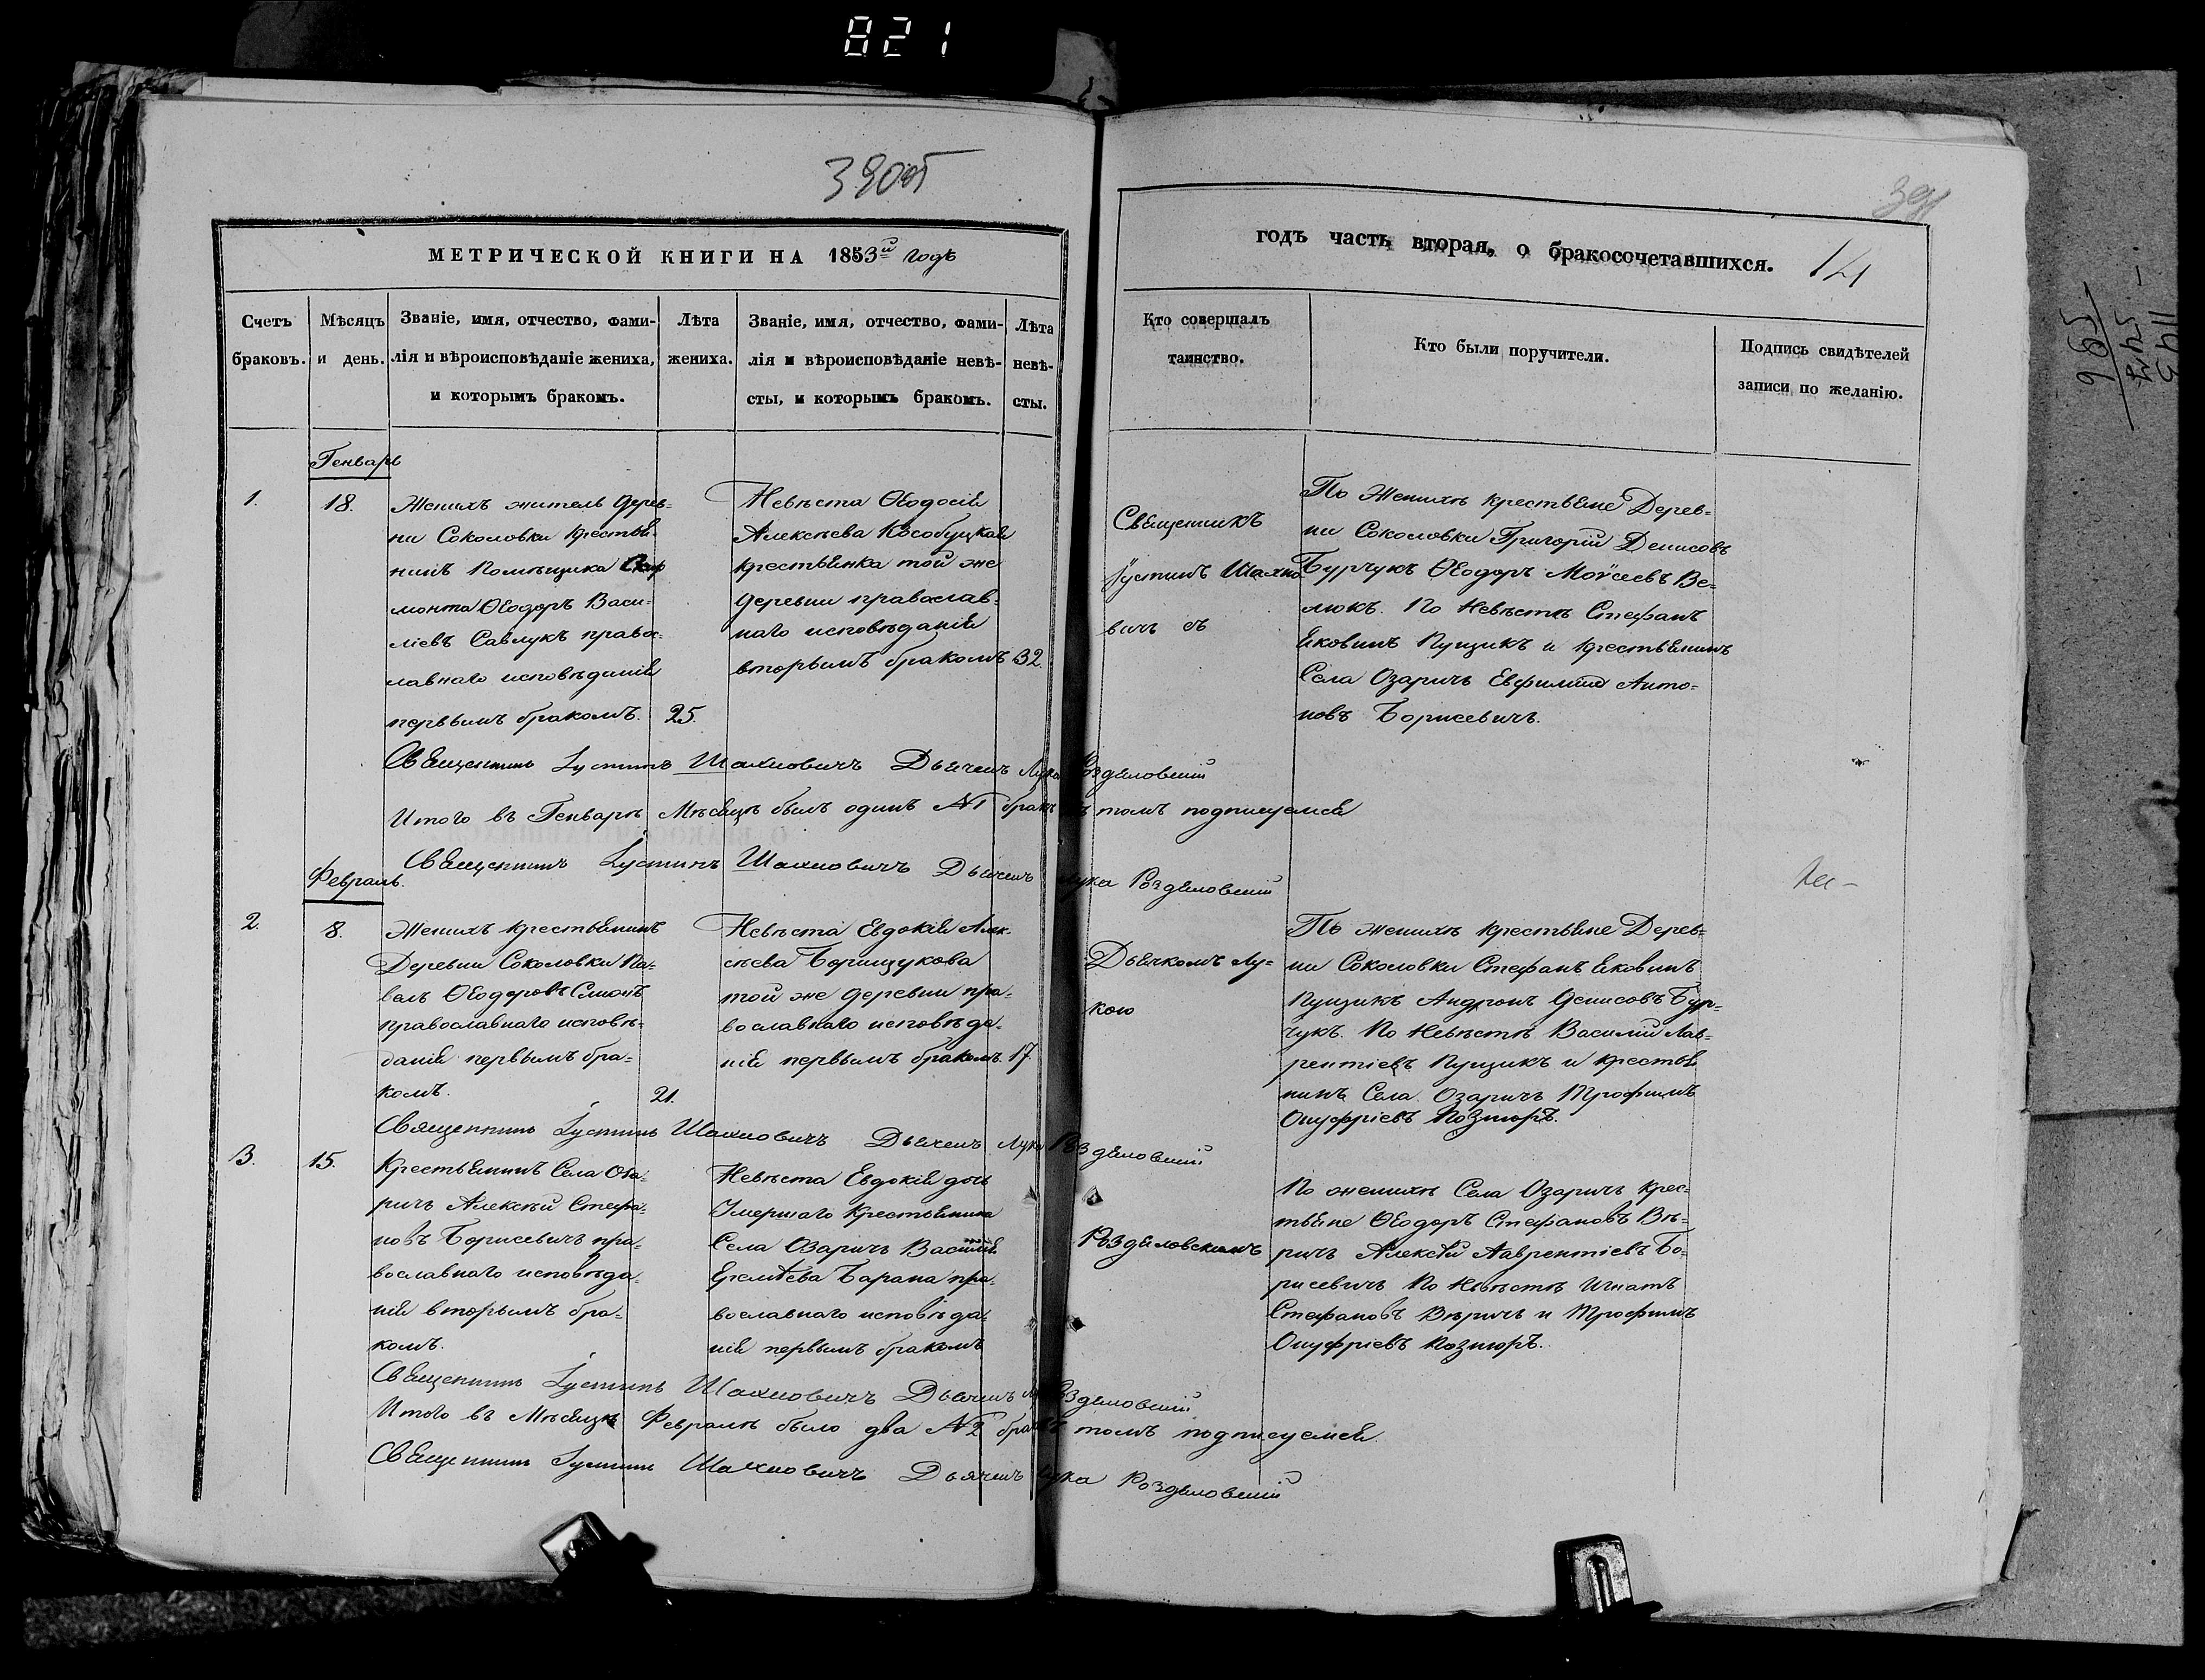 821
390об
391
МЕТРИЧЕСКОЙ КНИГИ НА 1853й годъ
годъ часть вторая, о бракосочетавшихся.
Счетъ браковъ.
Мѣсяцъ и день.
Званіе, имя, отчество, фами-
лія и вѣроисповѣданіе жениха,
и которымъ бракомъ.
Лѣта жениха.
Званіе, имя, отчество, фами-
лія и вѣроисповѣданіе невѣ-
сты, и которымъ бракомъ.
Лѣта невѣ-
сты.
Кто совершалъ
таинство.
Кто были поручители.
Подпись свидѣтелей
записи по желанію.
Генварь
1.
18.
Женихъ житель дерев=
ни Соколовки крестья=
нинъ Помѣщика
монта Ѳеодоръ Васи=
ліевъ Савлукъ правос=
лавнаго исповѣданія
первымъ бракомъ.
25.
Невѣста Ѳеодосія
Алексѣева Кособуцкая
крестьянка той же
деревни православ=
наго исповѣданія
вторымъ бракомъ
32.
Священникъ
Іустинъ Шахно
вичъ съ
По Женихѣ крестьяне Дерев=
ни Соколовки Григорій Денисовъ
Бурчукъ Ѳеодоръ Моѵсеевъ Ве=
люкъ. По Невѣстѣ Стефанъ
Яковинъ Пущикъ и крестьянинъ
Села Озаричъ Евфимій Анто=
новъ Борисевичъ.
Священникъ Іустинъ Шахновичъ Дьячекъ Лука Роздяловскій
Итого въ Генварѣ Мѣсяцѣ былъ одинъ №1 бракъ въ томъ подписуемся
Священникъ Іустинъ Шахновичъ Дьячекъ Лука Роздяловскій
Февраль.
2.
8.
Женихъ крестьянинъ
Деревни Соколовки Па=
велъ Ѳеодоровъ
православнаго исповѣ=
данія первымъ бра=
комъ.
21.
Невѣста Евдокія Алек=
сѣева Борищукова
той же деревни пра=
вославнаго исповѣда=
нія первымъ бракомъ.
17
Дьячкомъ Лу=
кою
По женихѣ крестьяне Дерев=
ни Соколовки Стефанъ Яковинъ
Пущикъ Андронъ Денисовъ Бур=
чукъ. По Невѣстѣ Василій Лав=
рентіевъ Пущикъ и крестья
нинъ Села Озаричъ Трофимъ
Онуфріевъ Позняръ.
Священникъ Іустинъ Шахновичъ Дьячекъ Лука Роздяловскій
3.
15.
Крестьянинъ Села Оза=
ричъ Алексѣй Стефа=
новъ Борисевичъ пра=
вославнаго исповѣда=
нія вторымъ бра=
комъ.
Невѣста Евдокія дочь
Умершаго Крестьянина
Села Озаричъ Василія
Еремѣева Барана пра=
вославнаго исповѣда=
нія первымъ бракомъ
Роздяловскимъ
По женихѣ Села Озаричъ крес=
тьяне Ѳеодоръ Стефановъ Вѣ=
ричъ Алексѣй Лаврентіевъ Бо=
рисевичъ По Невѣстѣ Игнатъ
Стефановъ Вѣричъ и Трофимъ
Онуфріевъ Позняръ.
Священникъ Іустинъ Шахновичъ Дьячекъ Лука Роздяловскій
Итого въ Мѣсяцѣ Февралѣ было два №2 брака въ томъ подписуемся
Священникъ Іустинъ Шахновичъ Дьячекъ Лука Роздяловскій